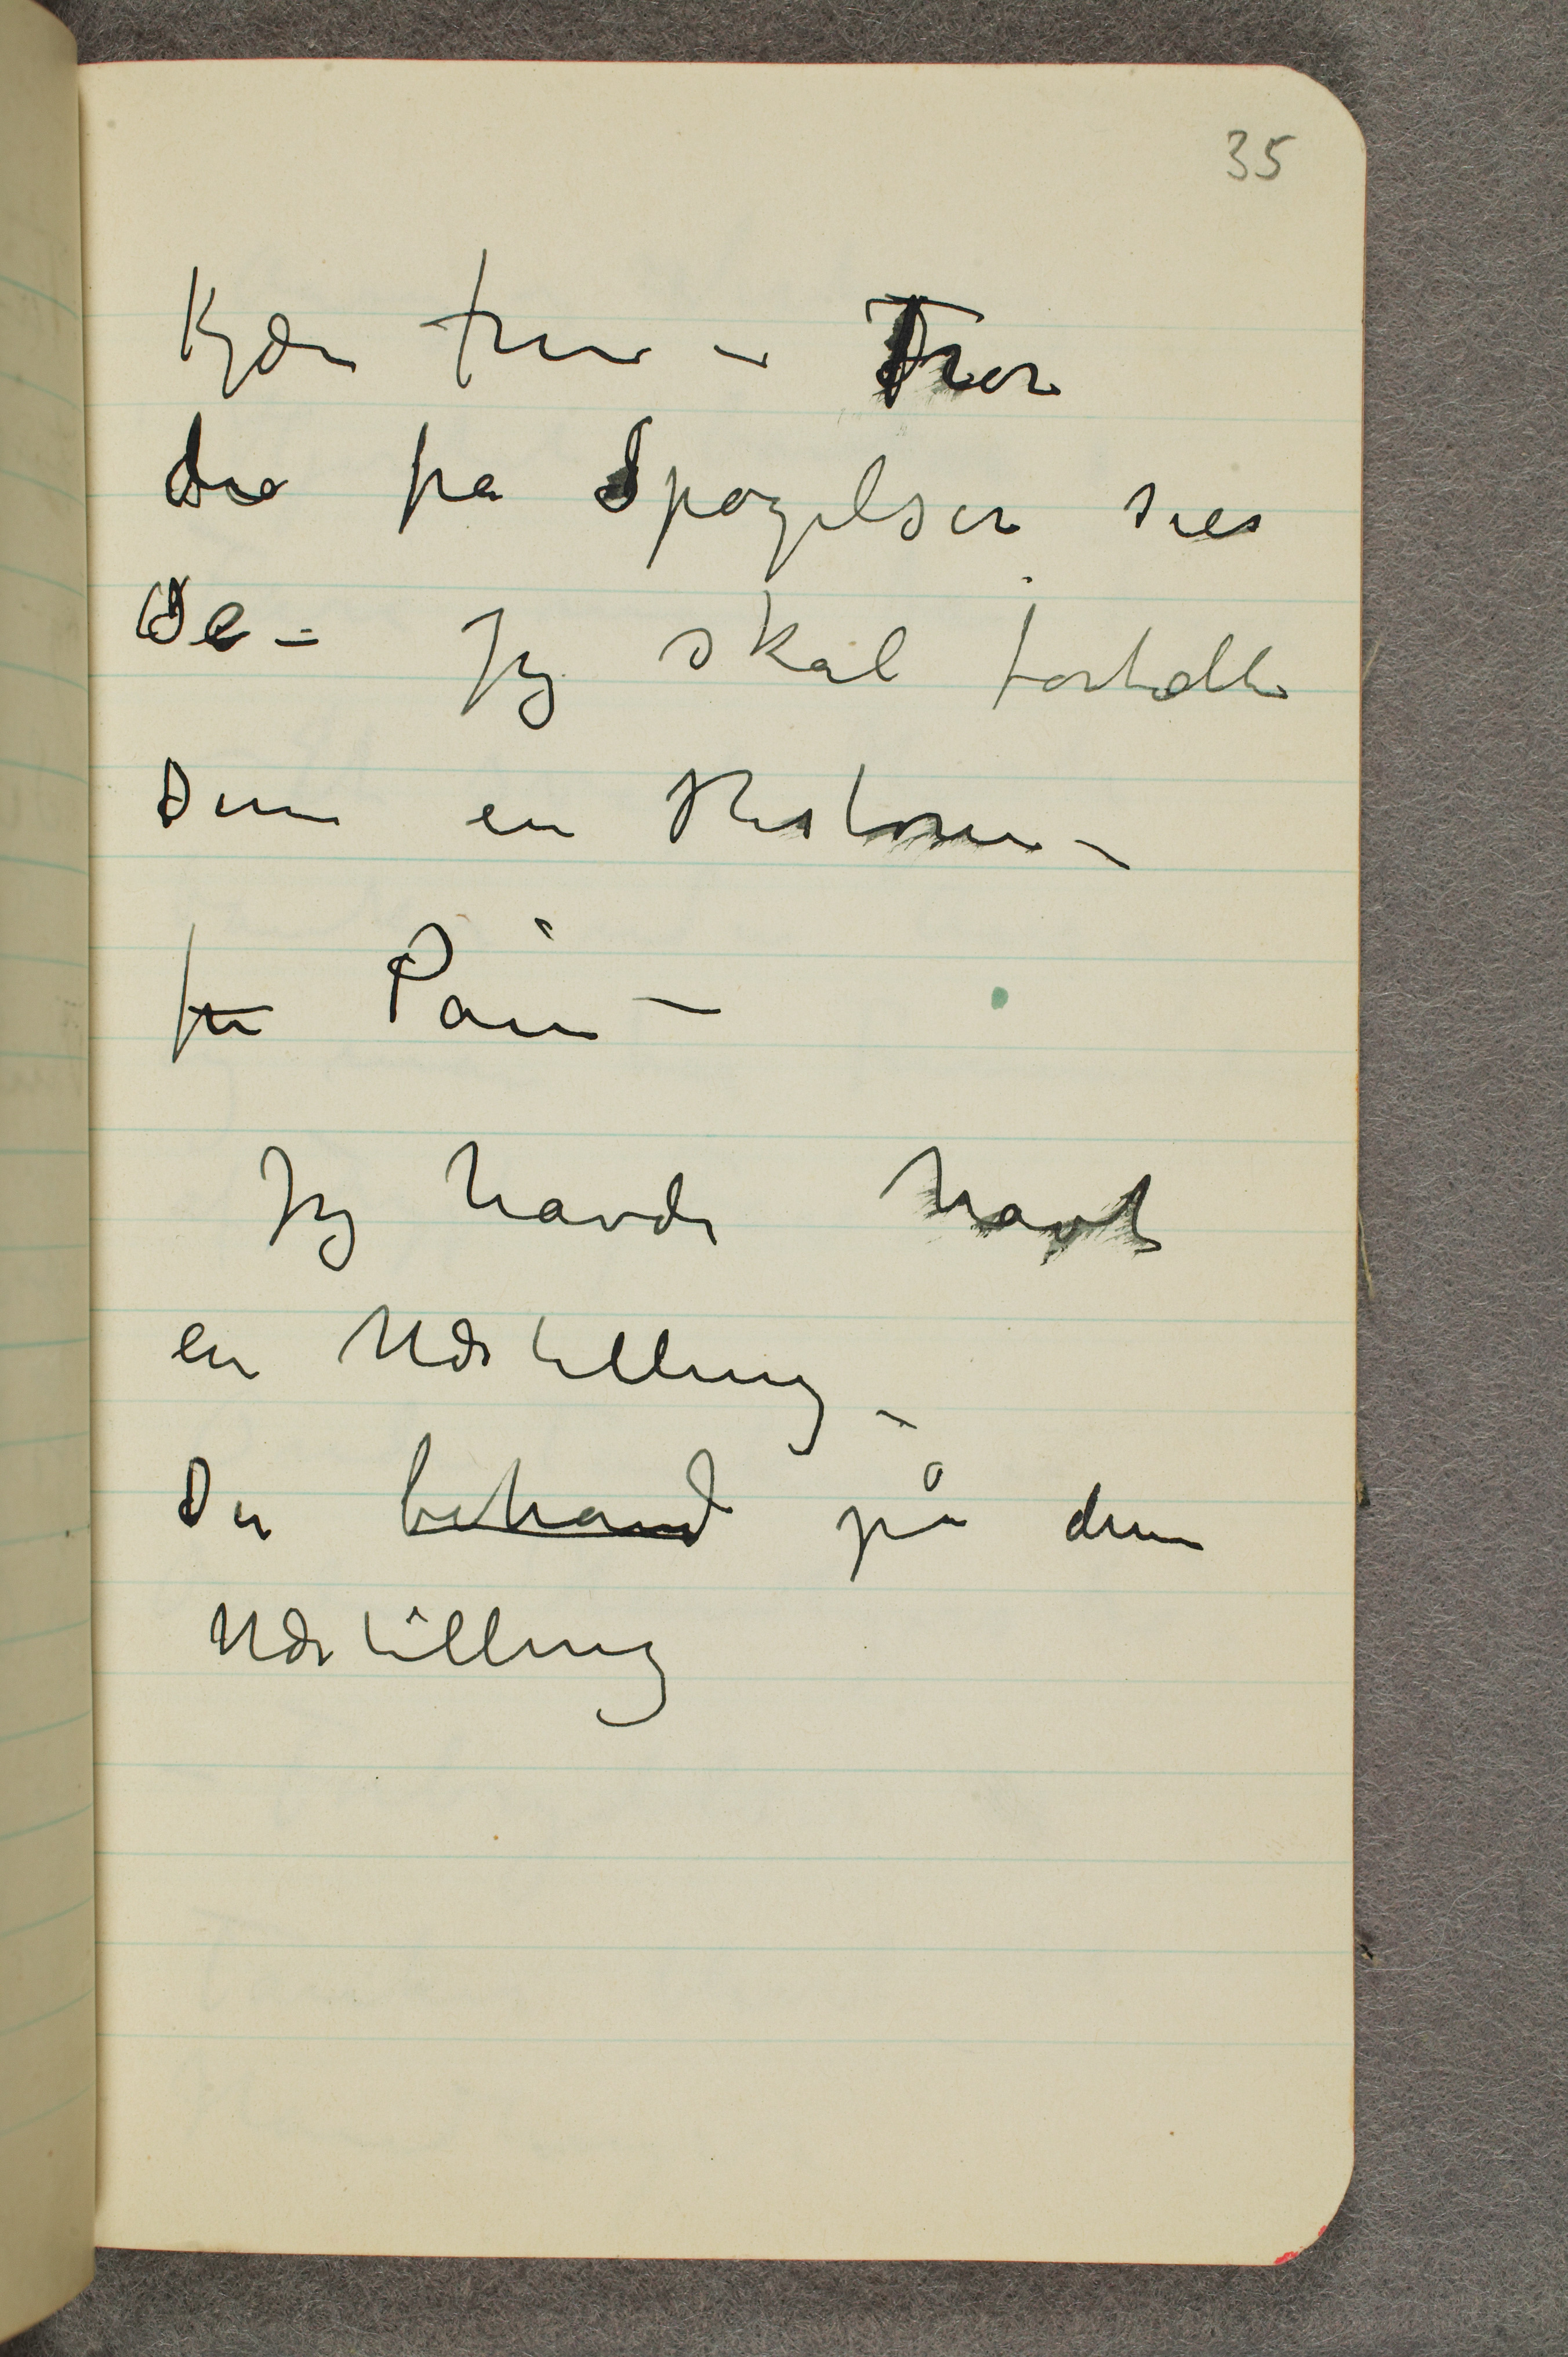 35
Kjære Frue – Tror
De på Spøgelser sier
De – Jeg skal fortælle
Dem en Historie –
fra Paris –
Jeg havde havt
en Udstilling –
Der behand på denne
Udstilling